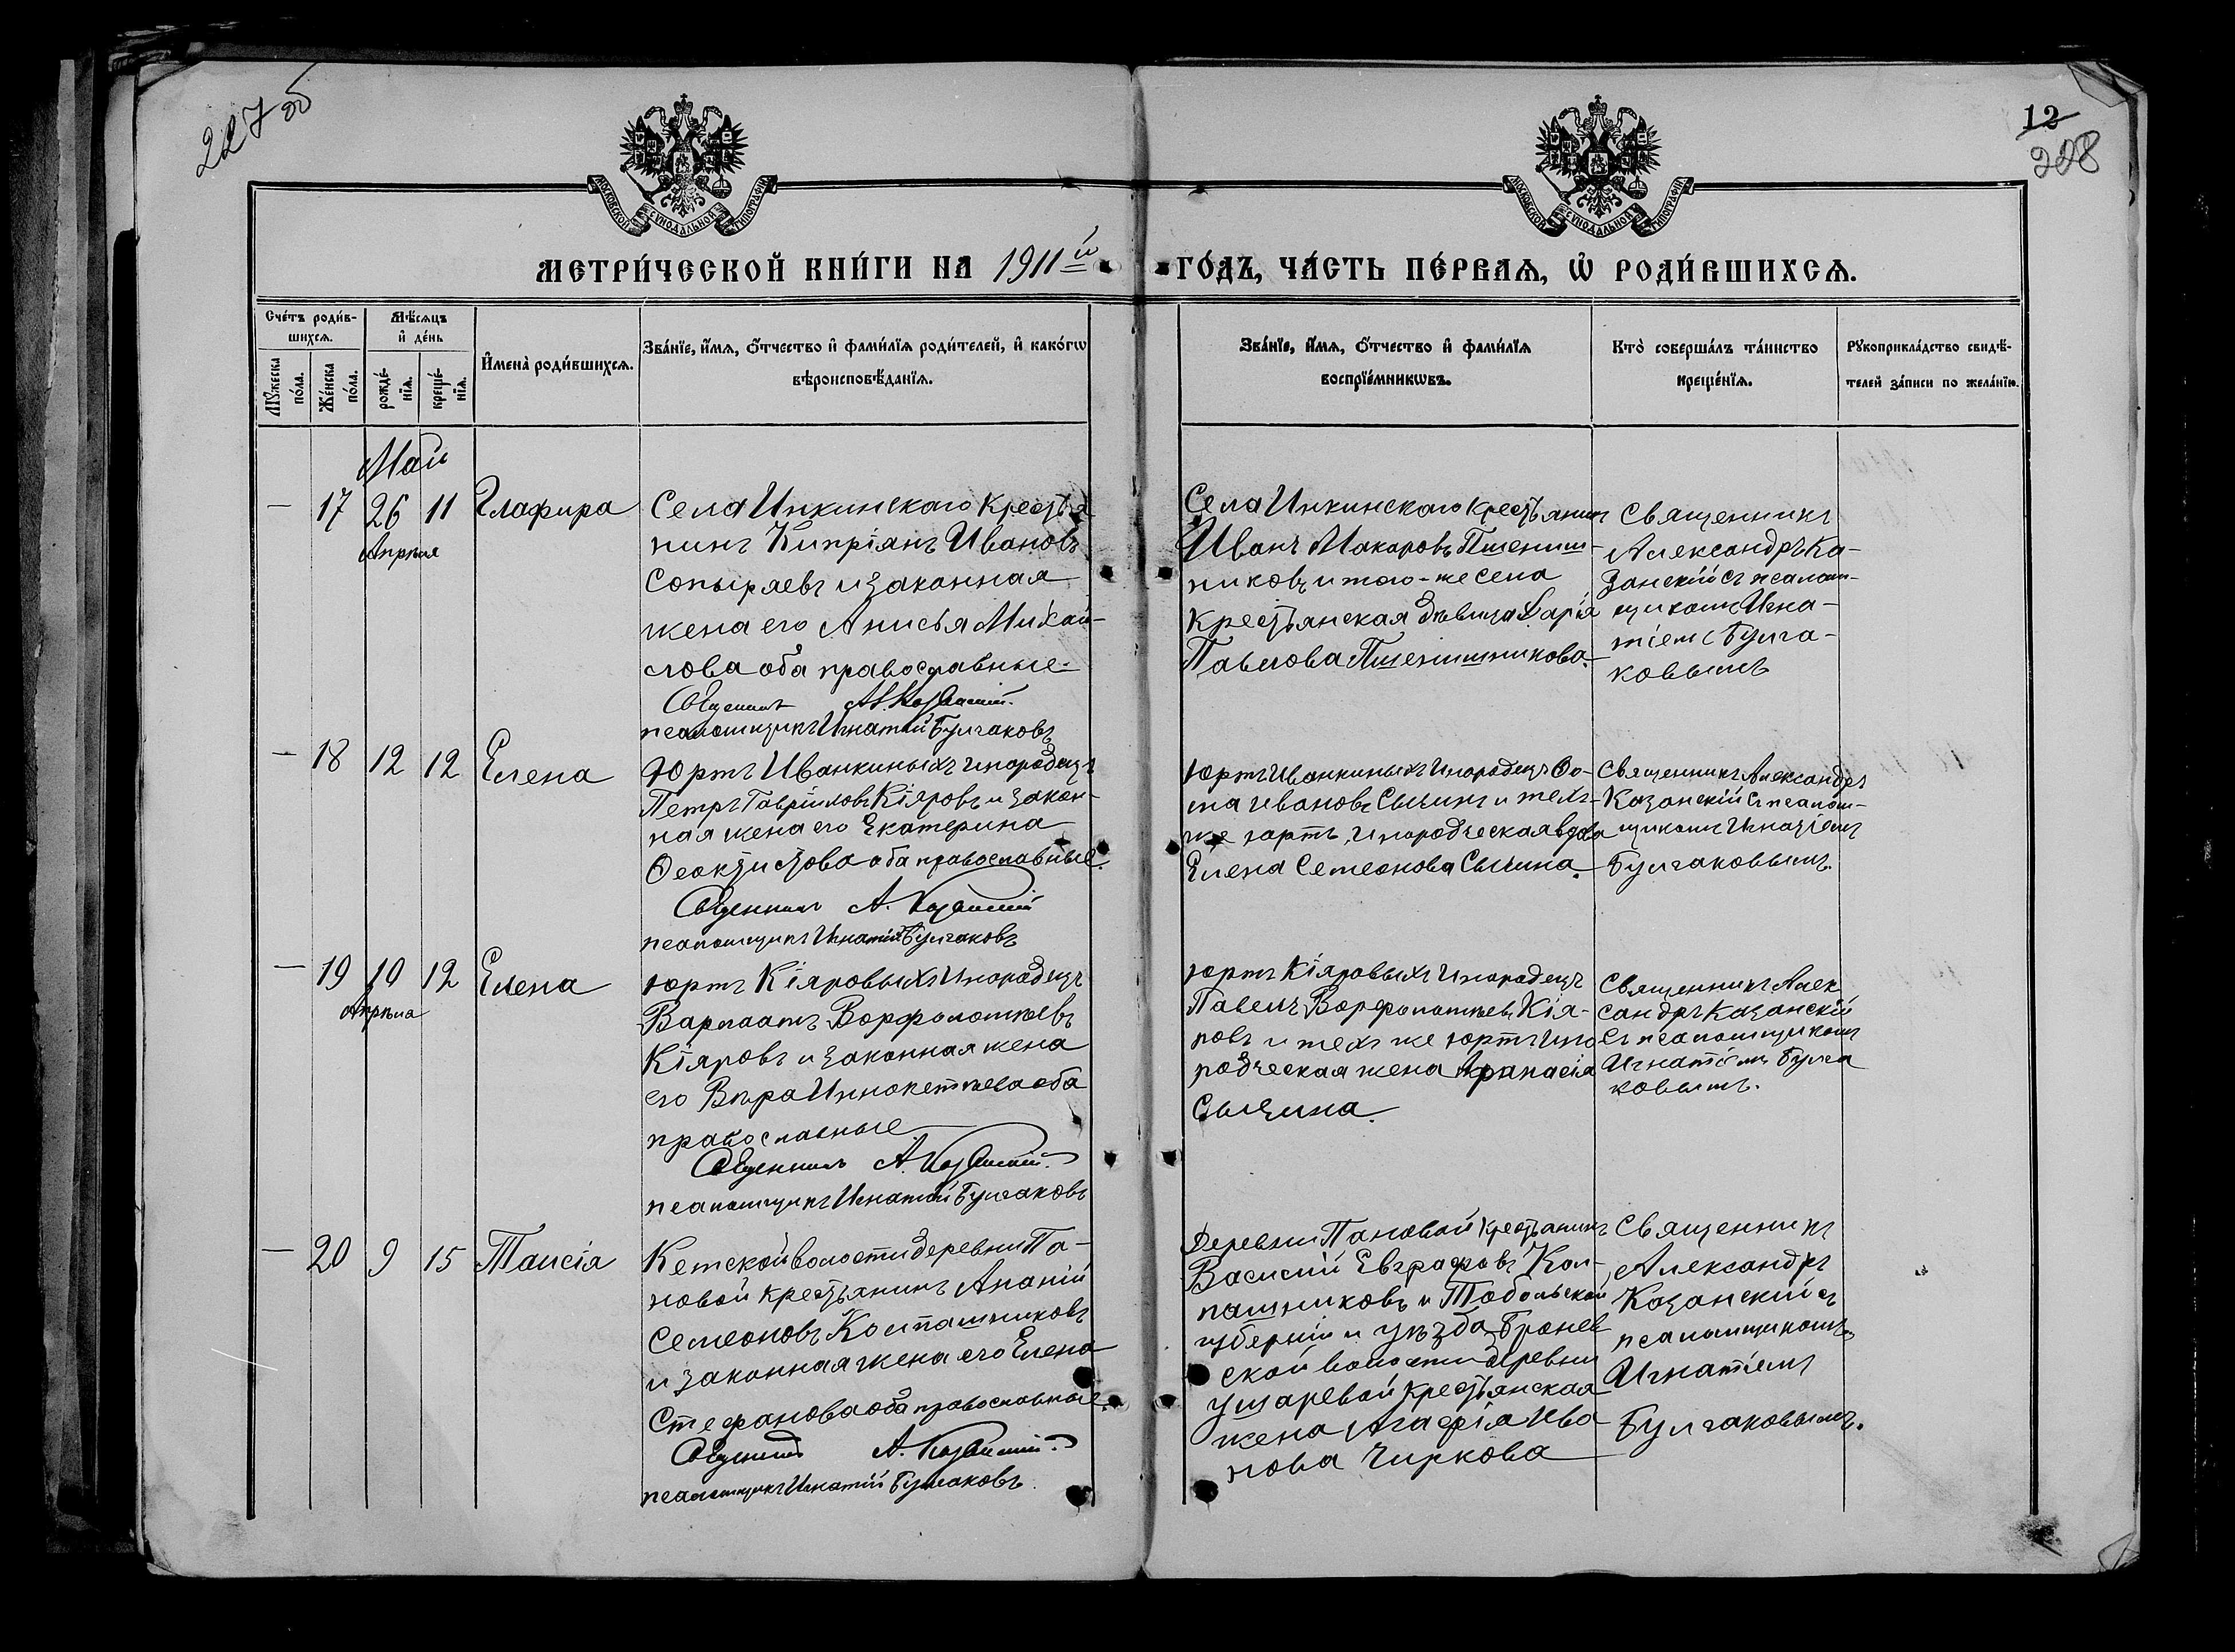 227 об
12
228
МОСКОВСКОЙ СѴНОДАЛЬНОЙ ТИПОГРАФІИ
МОСКОВСКОЙ СѴНОДАЛЬНОЙ ТИПОГРАФІИ
МЕТРИ́ЧЕСКОЙ КНИ́ГИ НА 1911й ГО́ДЪ, ЧА́СТЬ ПЕ́РВАѦ, Ѽ РОДИ́ВШИХСѦ.
Сче́тъ роди́в-
шихсѧ.
Мꙋ́жеска по́ла.
Же́нска по́ла.
Мѣ́сѧцъ
и҆ де́нь
рожде́-
нїѧ.
креще́-
нїѧ.
И҆мена̀ роди́вшихсѧ.
Зва́нїе, и҆́мѧ, ѻ҆́тчество и҆ фами́лїѧ роди́телей, и҆ како́гѡ
вѣроисповѣ́данїѧ.
Зва́нїе, и҆́мѧ, ѻ҆́тчество и҆ фами́лїѧ
воспрїе́мникѡвъ.
Кто̀ соверша́лъ та́инство
креще́нїѧ.
Рꙋкоприкла́дство свидѣ́-
телей за́писи по жела́нїю.
Май
— 17 26 11 Глафира
Апрѣля
Села Инкинскаго крестья
нинъ Кипріянъ Ивановъ
Сопыряевъ и законная
жена его Анисья Михай-
лова оба православные.
Священникъ А. Казанскій.
псаломщикъ Игнатій Булгаковъ
Села Инкинскаго крестьянинъ
Иванъ Макаровъ Пшенич-
никовъ и того-же села
крестьянская дѣвица Дарія
Павлова Пшеничникова.
Священникъ
Александръ Ка-
занскій съ псалом-
щикомъ Игна-
тіемъ Булга-
ковымъ
— 18 12 12 Елена
Юртъ Иванкиныхъ инородецъ
Петръ Гавріиловъ Кіяровъ и закон-
ная жена его Екатерина
Ѳеоктистова оба православные.
Священникъ А. Казанскій
псаломщикъ Игнатій Булгаковъ
юртъ Иванкиныхъ инородецъ Ѳо-
ма Ивановъ Сычинъ и тѣхъ-
же юртъ, инородческая вдова
Елена Семеонова Сычина.
Священникъ Александръ
Казанскій съ псалом-
щикомъ Игнатіемъ
Булгаковымъ.
— 19 10 12 Елена
Апрѣля
юртъ Кіяровыхъ инородецъ
Варлаамъ Ворфоломѣевъ
Кіяровъ и законная жена
его Вѣра Иннокетьева оба
православные
Священникъ А. Казанскій.
псаломщикъ Игнатій Булгаковъ
юртъ Кіяровыхъ инородецъ
Павелъ Ворфоломѣевъ Кія-
ровъ и тѣхъ же юртъ ино
родческая жена Афанасія
Сычина.
Священникъ Алек
сандръ Казанскій
съ псаломщикомъ
Игнатіемъ Булга
ковымъ.
— 20 9 15 Таисія
Кетской волости деревни Па-
новой крестьянинъ Ананій
Семеоновъ Колпашниковъ
и законная жена его Елена
Стефанова оба православные.
Священникъ А. Казанскій.
псаломщикъ Игнатій Булгаковъ.
Деревни Пановой крестьянинъ
Василій Евграфовъ Кол-
пашниковъ и Тобольской
губерніи и уѣзда Бронев
ской волости деревни
Ушаревой крестьянская
жена Агафія Ива
нова Чиркова
Священникъ
Александръ
Казанскій съ
псаломщикомъ
Игнатіемъ
Булгаковымъ.